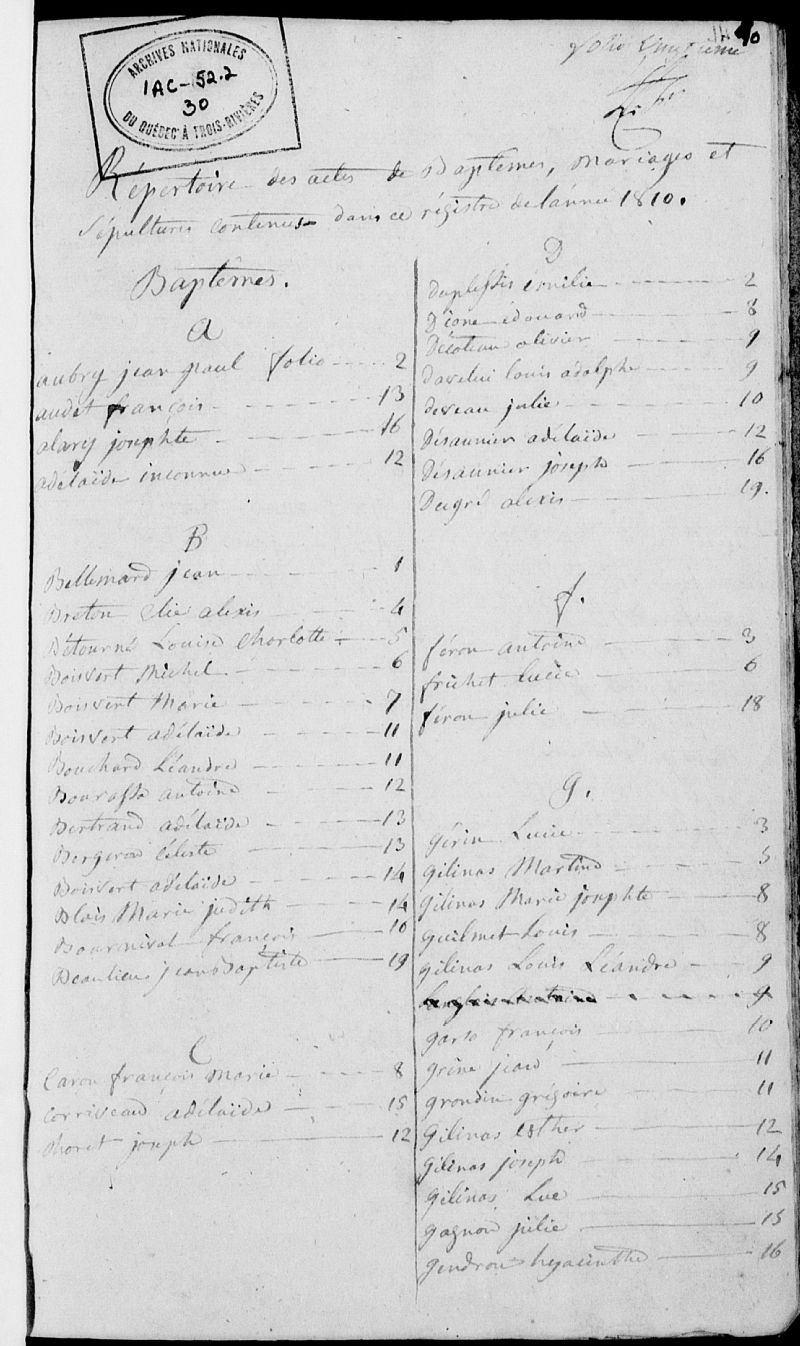 ARCHIVES NATIONALES
1AC-52.2
30
DU QUÉBEC À TROIS-RIVIÈRES
folio
Répertoire des actes de Baptêmes, mariages et
sépultures contenus dans ce régistre de l'année 1810.
Baptêmes.
A
aubry jean paul folio 2
audet françois 13
alary josephte 16
adélaïde inconnue 12
B
Bellemard jean 1
Breton Elie alexis 4
Bétourné Louise Charlotte 5
Boisvert Michel 6
Boisvert Marie 7
Boisvert adélaïde 11
Bouchard Léandre 11
Bourassa antoine 12
Bertrand adélaïde 13
Bergeron Céleste 13
Boisvert adélaïde 14
Blais Marie judith 14
Bournival françois 10
Beaulieu jean Baptiste 19
C
Caron françois Marie 8
Corriveau adélaïde 15
Choret joseph 12
D
Duplessis émilie 2
Dione édouard 8
Décoteau olivier 9
Davelui louis adolphe 9
deveau julie 10
Désaunier adélaïde 12
Désaunier joseph 16
Dugré alexis 19.
f.
féron antoine 3
frichet Lucie 6
féron julie 18
g.
gérin Lucie 3
gilinas Martine 5
gilinas Marie josephte 8
guilmet Louis 8
gilinas Louis Léandre 9
9
garso françois 10
grine jean 11
grondin grégoire 11
gilinas Esther 12
gilinas joseph 14
gilinas Luc 15
gagnon julie 15
gendron hyacinthe 16